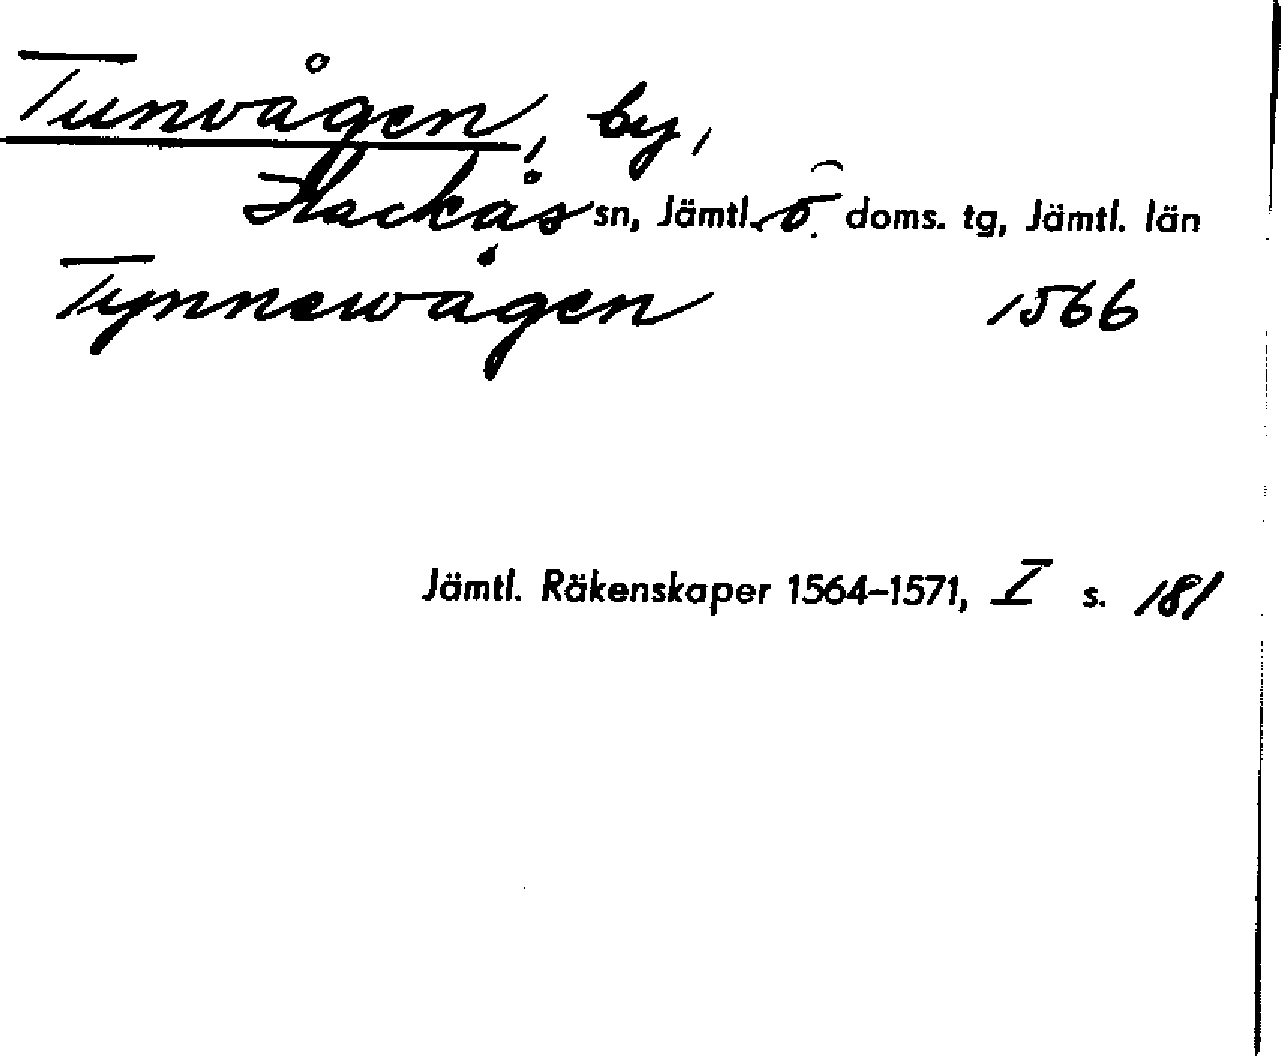 Tunvågen, by,
Hackås sn, Jämtl. ö. doms. tg, Jämtl. län
Tynnewågen 1566
Jämtl. Räkenskaper 1564–1571, I s. 181